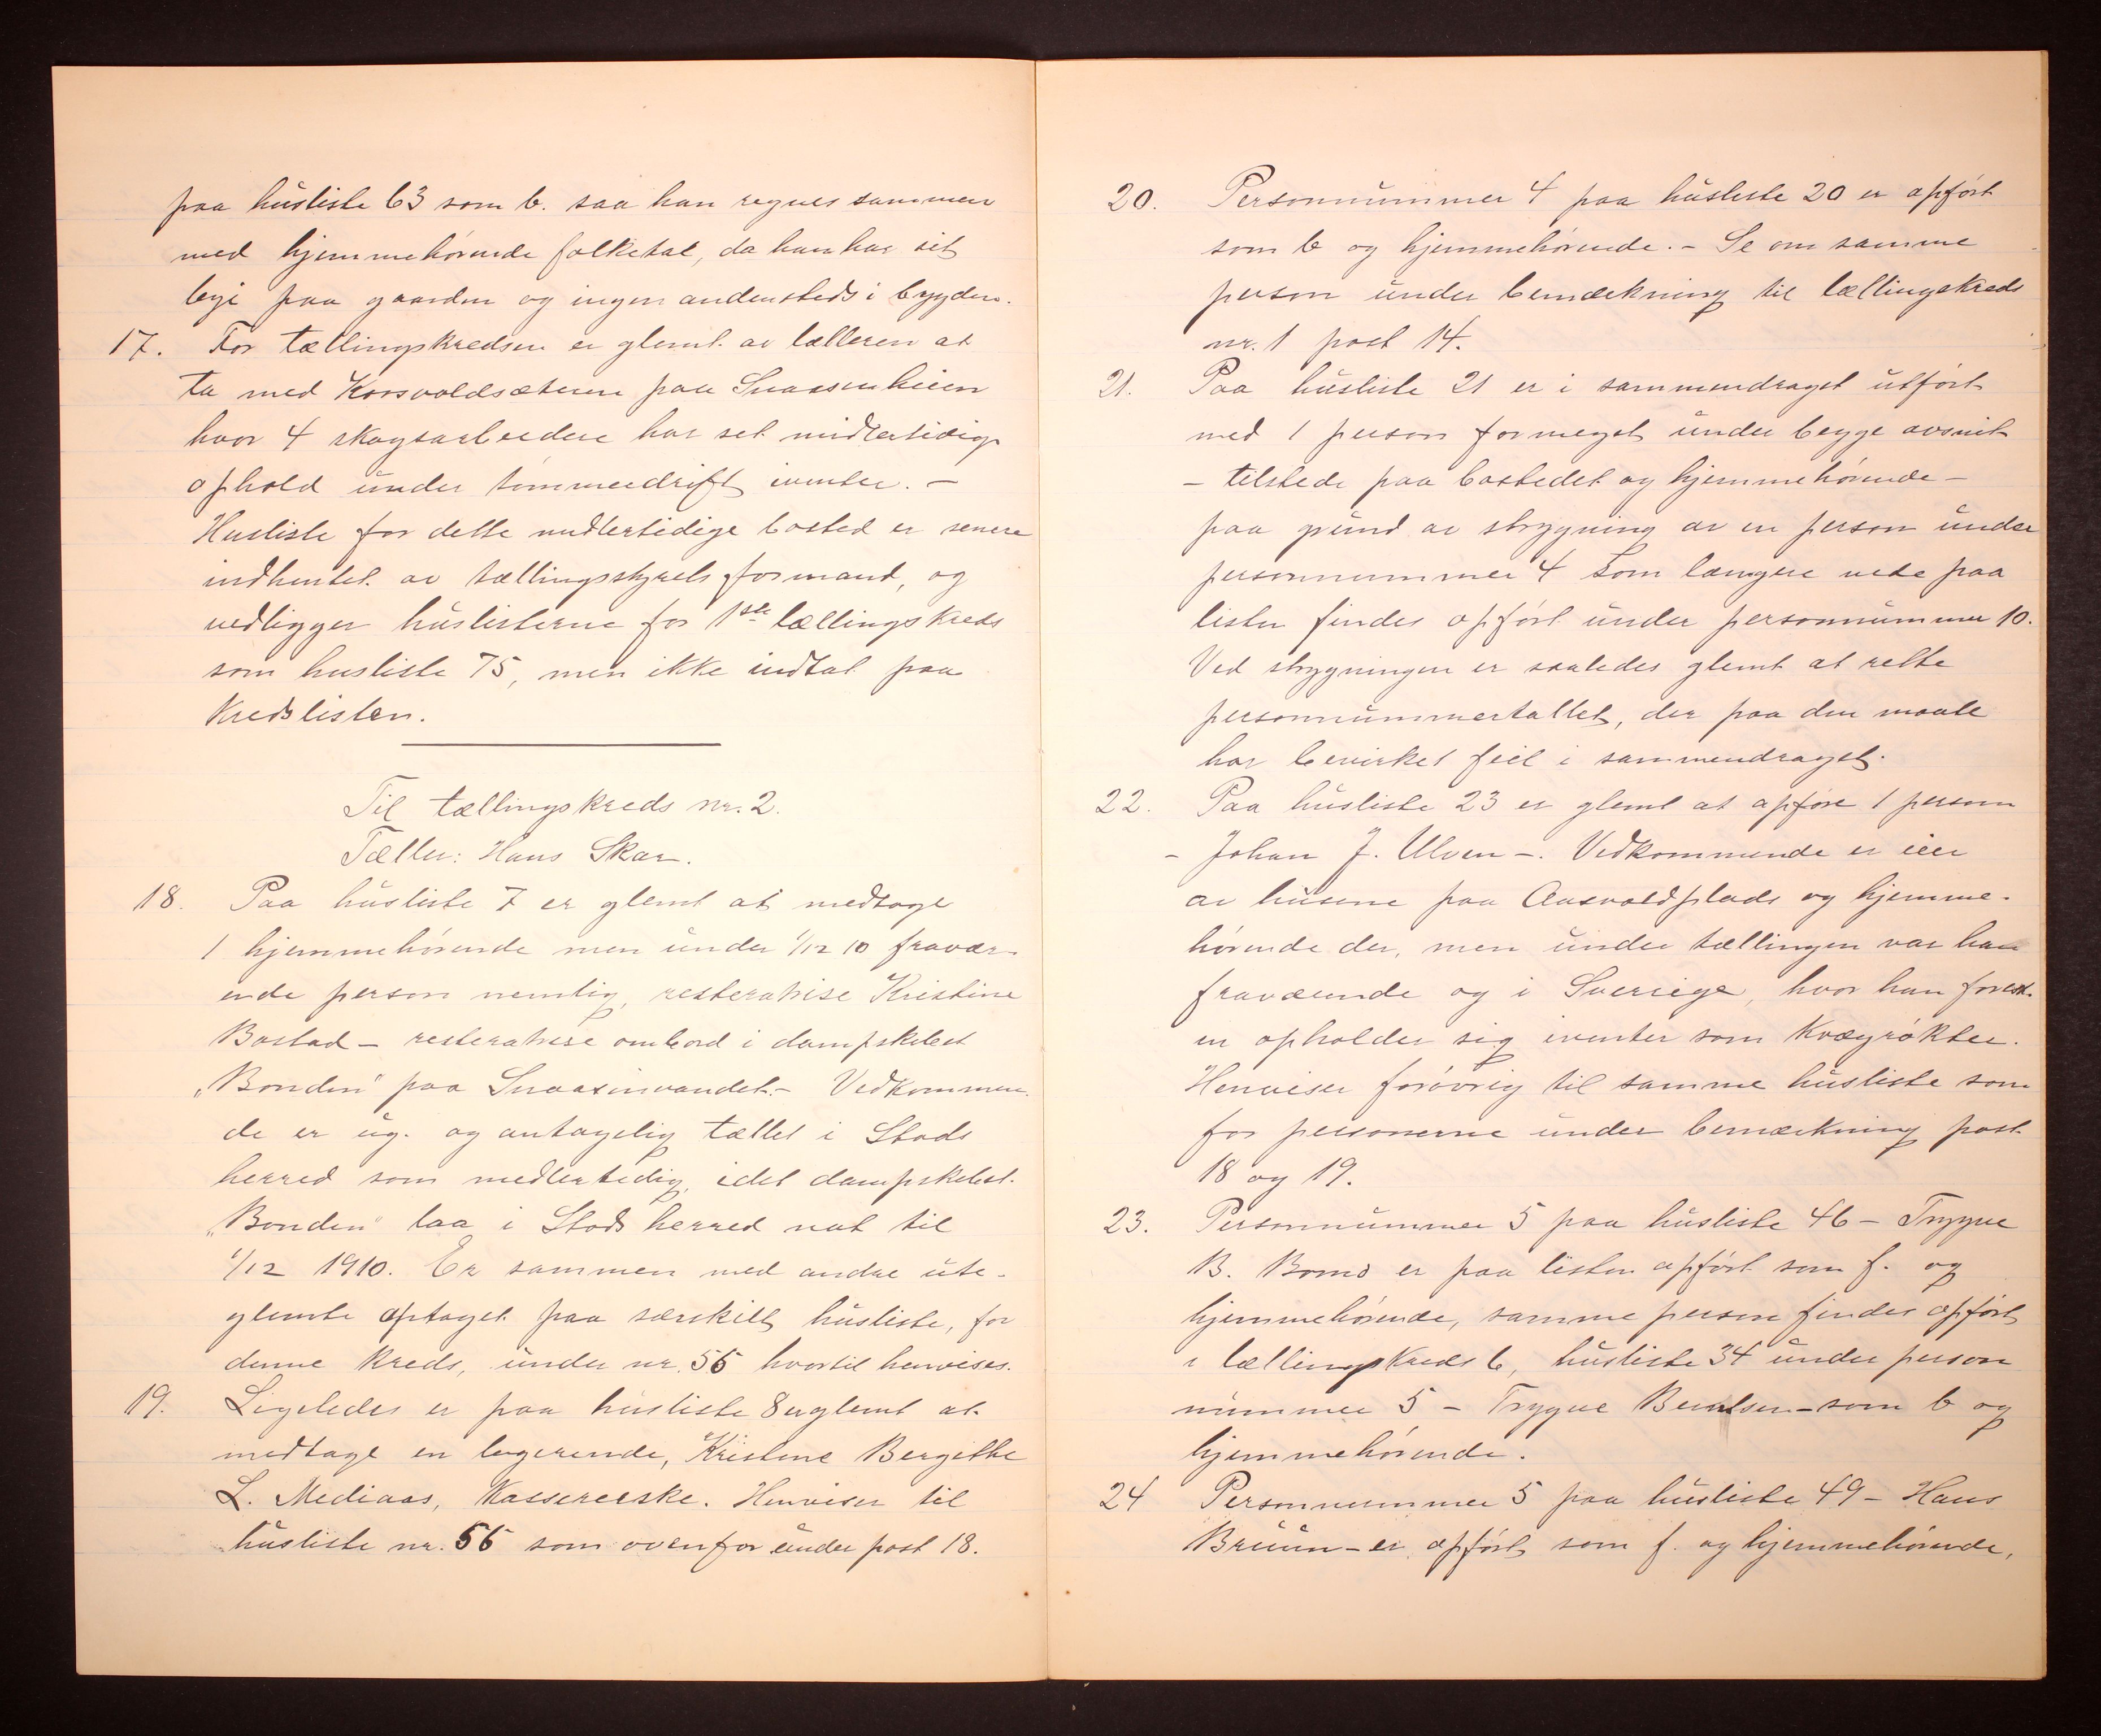 paa husliste 63 som b. saa han regnes sammen
med hjemmehørende folketal, da han har sit
leje paa gaarden og ingen andensteds i bygden.
17. For tællingskredsen er glemt av tælleren at
ta med Korsvoldsæteren paa Snaasenheien
hvor 4 skogsarbeidere har set midlertidig
ophold under tømmerdrift ivinter. –
Husliste for dette midlertidige bosted er senere
indhentet av tællingsstyrets formand, og
vedligger huslisterne for 1ste tællingskreds
som husliste 75, men ikke indtat paa
Kredslisten.
Til tællingskreds nr. 2.
Tæller: Hans Skar.
18. Paa husliste 7 er glemt at medtage
1 hjemmehørende men under 1/12 10 fravær-
ende person nemlig, resteratrise Kristine
Bostad – resteratrise ombord i dampskibet
„Bonden" paa Snaasenvandet. – Vedkommen-
de er ug. og antagelig tællet i Stods
herred som midlertidig, idet dampskibet
„Bonden" laa i Stods herred nat til
1/12 1910. Er sammen med andre ute-
glemte optaget paa særskilt husliste, for
denne Kreds, under nr. 56 hvortil henvises.
19. Ligeledes er paa husliste 8 er glemt at
medtage en logerende, Kristine Bergitte
L. Mediaas, Kassererske. Henviser til
husliste nr. 56 som ovenfor under post 18.
20. Personnummer 4 paa husliste 20 er opført
som b og hjemmehørende. – Se om samme
person under bemærkning til tællingskreds
nr. 1 post 14.
21. Paa husliste 21 er i sammendraget utført
med 1 person formeget under begge avsnit
– tilstede paa bostedet og hjemmehørende –
paa grund av strygning av en person under
personnummer 4 som længere nede paa
listen findes opført under personnummer 10.
Ved strygningen er saaledes glemt at rette
personnummertallet, der paa den maate
har bevirket feil i sammendraget.
22. Paa husliste 23 er glemt at opføre 1 person
– Johan J. Ulven –. Vedkommende er eier
av husene paa Aasvoldplads og hjemme-
hørende der, men under tællingen var han
fraværende og i Sverige, hvor han forest-
en opholder sig ivinter som Kvægrøkter.
Henviser forøvrig til samme husliste som
for personerne under bemærkning post
18 og 19.
23. Personnummer 5 paa husliste 46 – Trygve
B. Bomo er paa listen opført som f. og
hjemmehørende, samme person findes opført
i tællingskreds 6, husliste 34 under person
nummer 5 – Trygve Berntsen – som b og
hjemmehørende.
24 Personnummer 5 paa husliste 49 – Hans
Bruun – er opført som f. og hjemmehørende,